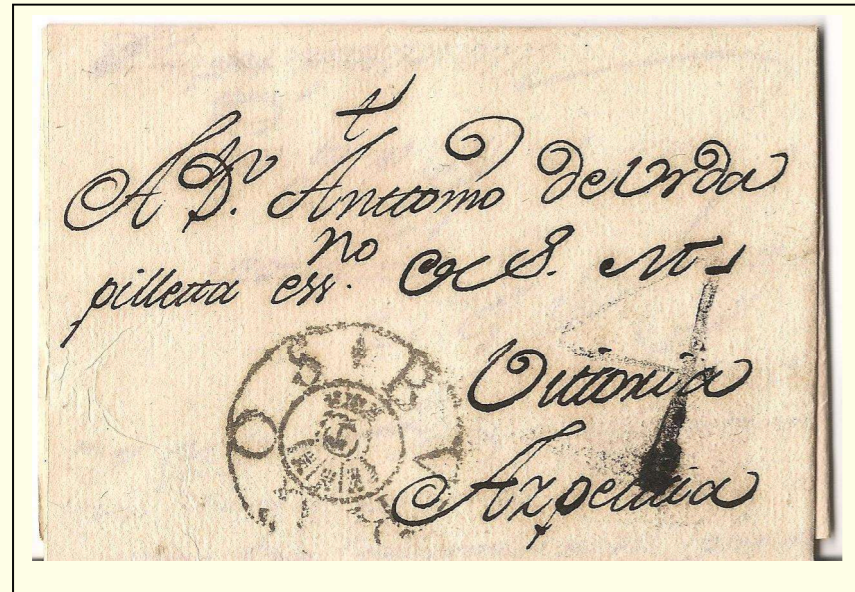 A D.ⁿ Anttonio de Urda
pilletta ess.ⁿᵒ de S. M.
Vittoria
Azpeitia